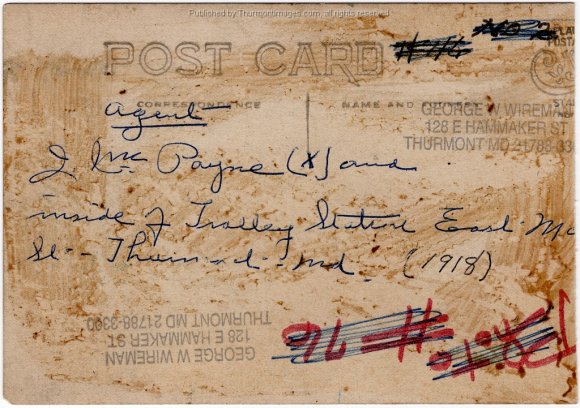 Published by Thurmontimages.com, all rights reserved
POST CARD
CORRESPONDENCE
NAME AND ADDRESS
GEORGE W WIREMAN
128 E HAMMAKER ST
THURMONT MD 21788-33
Agent
J Mc Payne (X) and
inside of Trolley Station East Ma
St - Thurmont - Md. (1918)
GEORGE W WIREMAN
128 E HAMMAKER ST
THURMONT MD 21788-3390